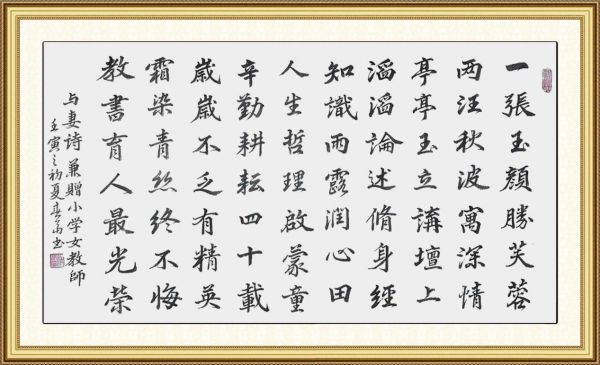 一張玉顏勝芙蓉
両汪秋波寓深情
亭亭玉立講壇上
滔滔論述脩身經
知識雨露潤心田
人生哲理啟蒙童
辛勤耕耘四十載
歲歲不乏有精英
霜染青絲終不悔
教書育人最光榮
与妻诗 兼贈小学女教師
壬寅之初夏书